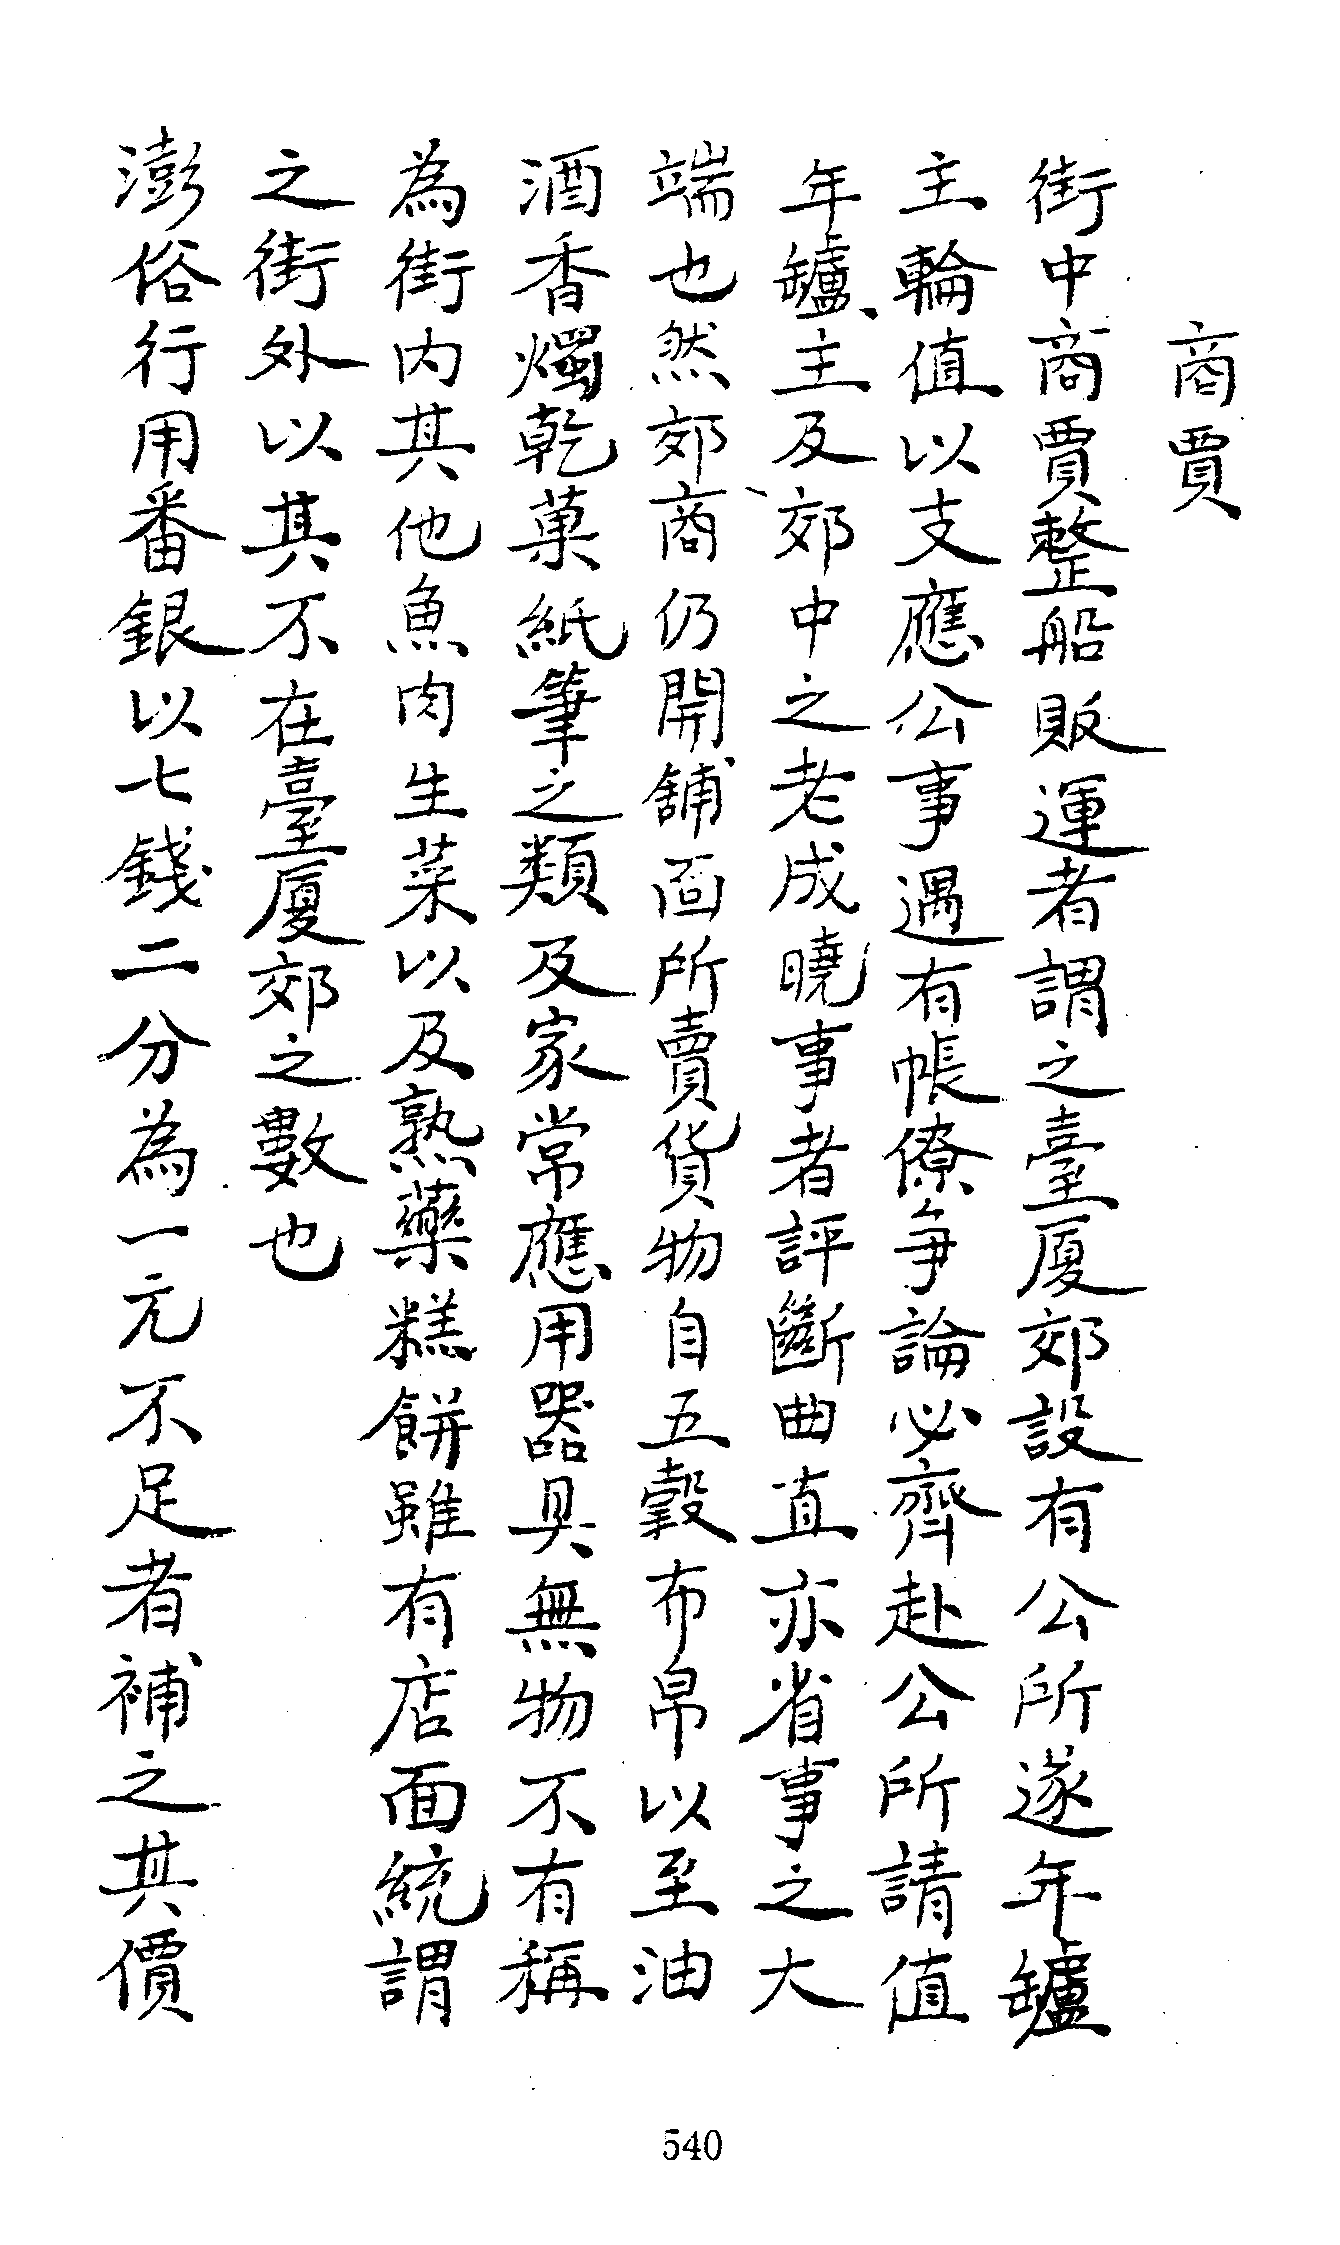 商賈
街中商賈整船販運者謂之臺廈郊設有公所遂年罏
主輪值以支應公事遇有帳僚爭論必齊赴公所請值
年罏主及郊中之老成曉事者評斷曲直亦省事之大
端也然郊商仍開舖面所賣貨物自五穀布帛以至油
酒香燭乾菓紙筆之類及家常應用器具無物不有稱
為街內其他魚肉生菜以及熟藥糕餅雖有店面統謂
之街外以其不在臺廈郊之數也
澎俗行用番銀以七錢二分為一元不足者補之其價
540